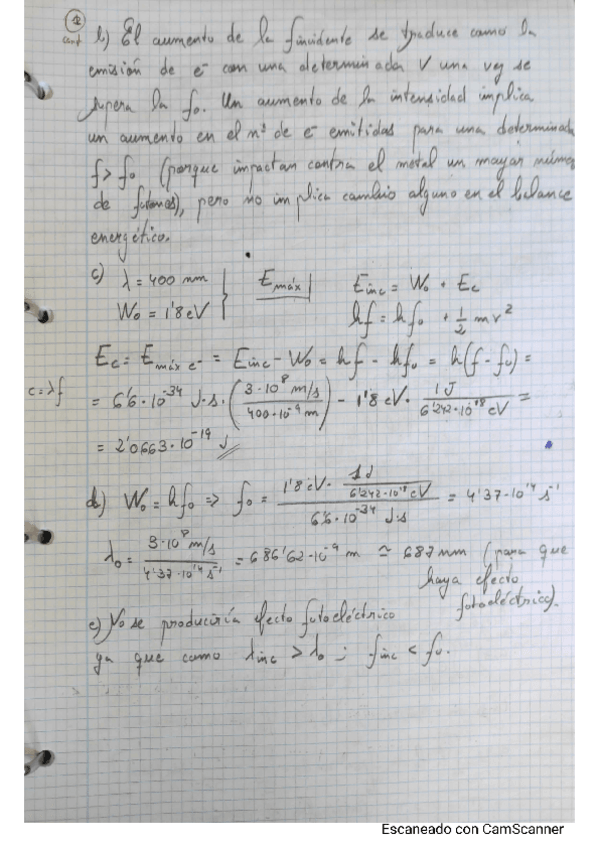 ① cont
b) El aumento de la f incidente se traduce como la
emisión de e- con una determinada V una vez se
supera la fo. Un aumento de la intensidad implica
un aumento en el nº de e- emitidas para una determinada
f > fo (porque impactan contra el metal un mayor número
de fotones), pero no implica cambio alguno en el balance
energético.
c) λ = 400 nm } Emáx | Einc = Wo + Ec
Wo = 1'8 eV } hf = hfo + 1/2 mv²
Ec = Emáx e- = Einc - Wo = hf - hfo = h(f - fo) =
c = λf
= 6'6·10⁻³⁴ J·s · (3·10⁸ m/s / 400·10⁻⁹ m) - 1'8 eV · 1J / 6'242·10⁺¹⁸ eV =
= 2'0663·10⁻¹⁹ J
d) Wo = hfo => fo = 1'8 eV · 1J / 6'242·10⁺¹⁸ eV / 6'6·10⁻³⁴ J·s = 4'37·10¹⁴ s⁻¹
λo = 3·10⁸ m/s / 4'37·10¹⁴ s⁻¹ = 686'62·10⁻⁹ m ≃ 687 nm (para que
haya efecto
fotoeléctrico).
e) No se produciría efecto fotoeléctrico
ya que como λinc > λo ; finc < fo.
Escaneado con CamScanner